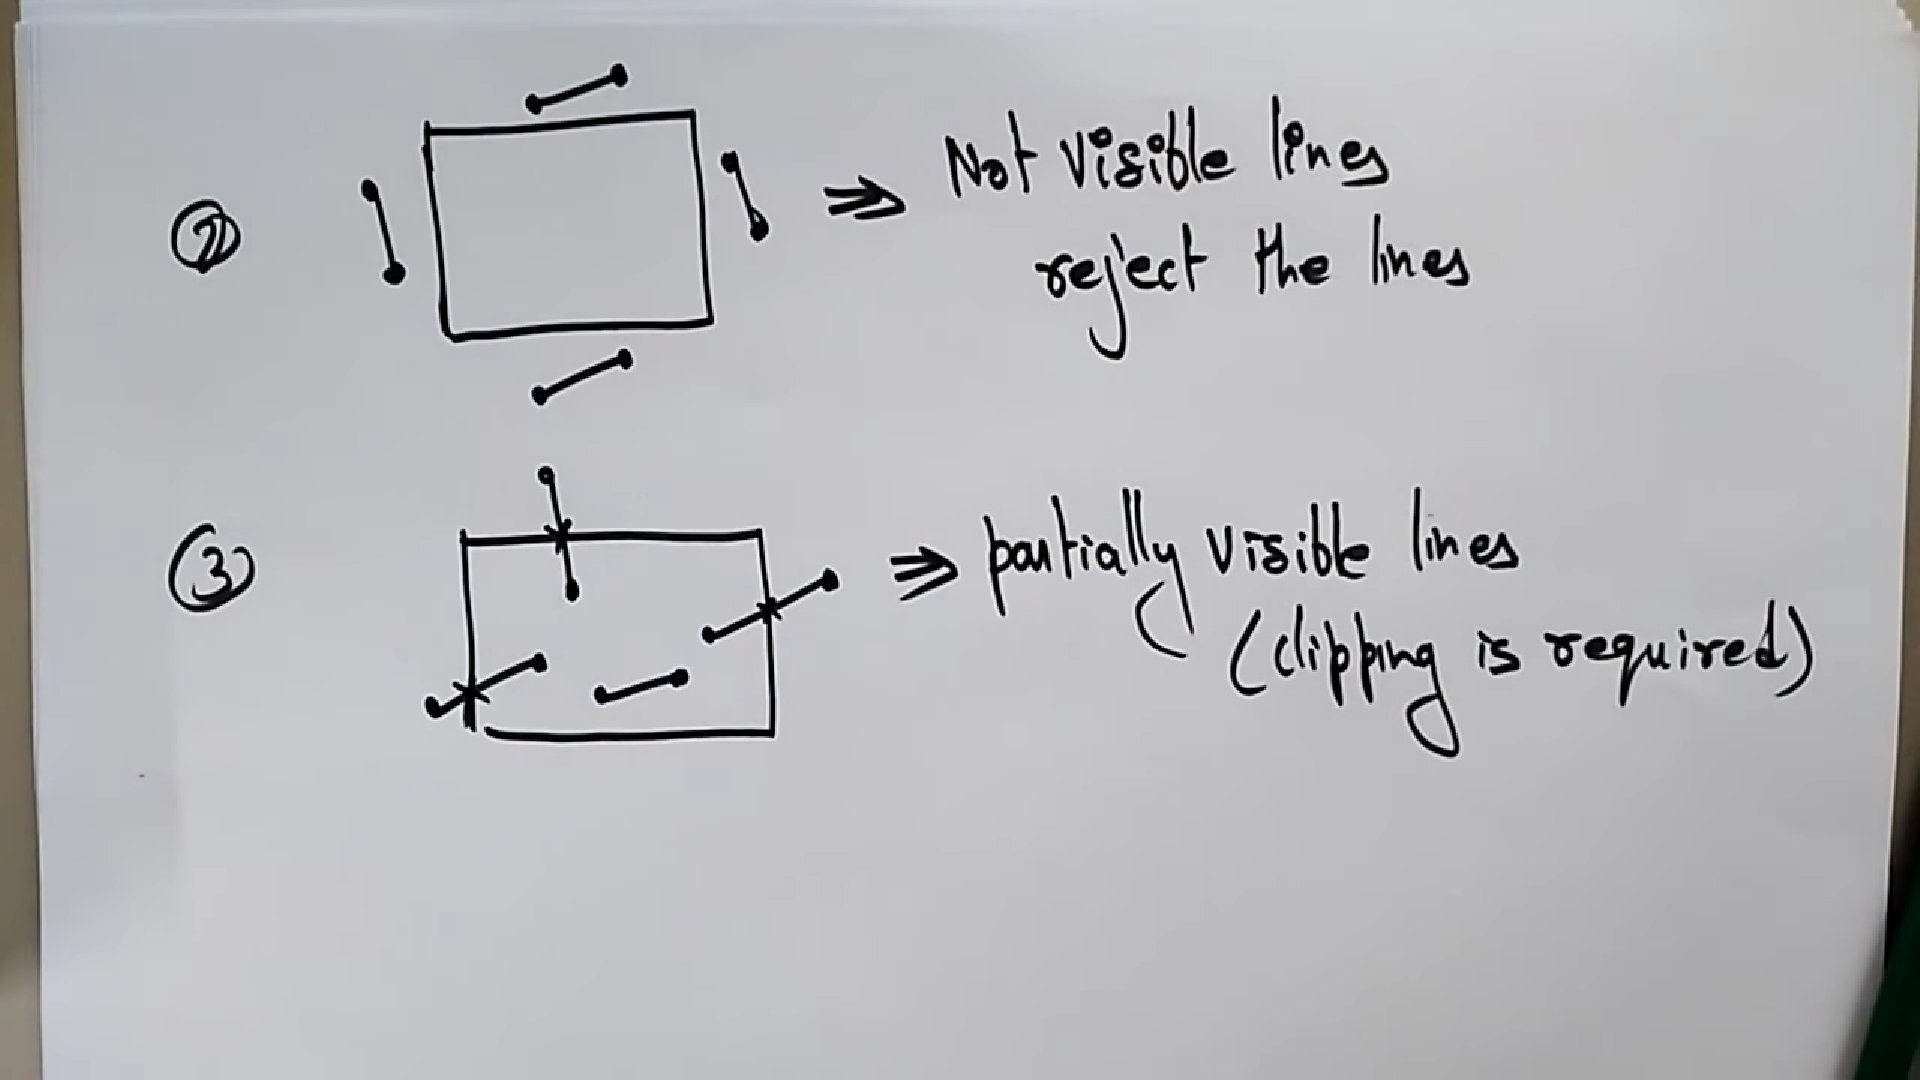 ② ⇒ Not visible lines
reject the lines
③ ⇒ partially visible lines
(clipping is required)